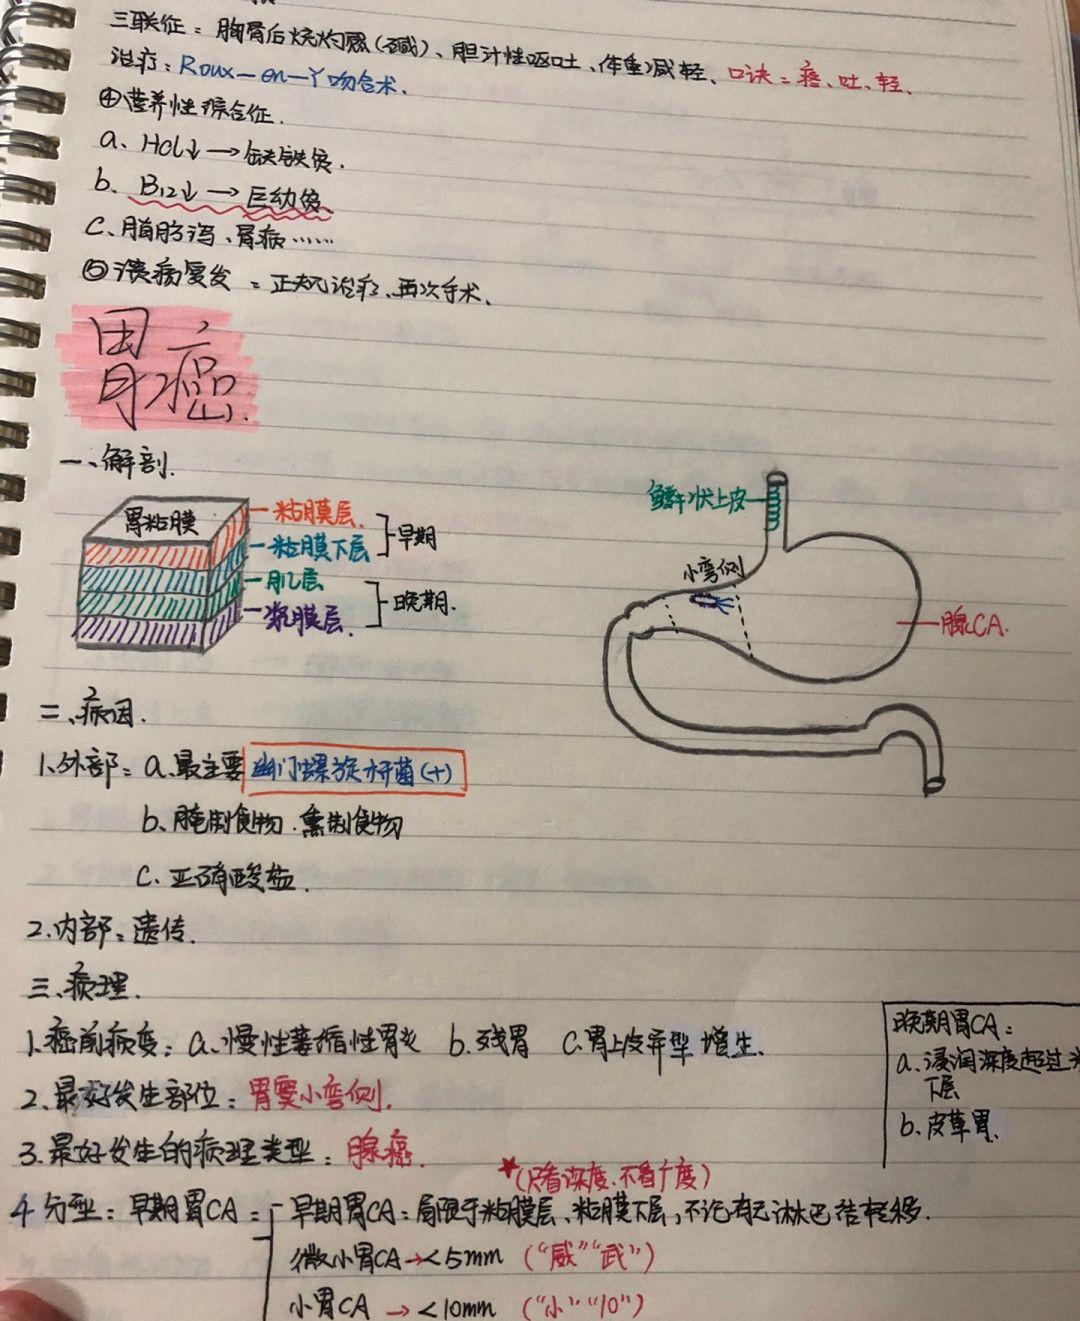 三联征：胸骨后烧灼感(碱)、胆汁性呕吐、体重减轻、口诀：痞、吐、轻、
治疗：Roux-en-Y吻合术.
④营养性综合征.
a、Hcl↓→缺铁贫.
b、B12↓→巨幼贫.
C、脂肪泻、胃病……
⑤溃疡复发：正规治疗、再次手术、
胃癌.
一、解剖.
胃粘膜
粘膜层.
粘膜下层
早期
肌层
浆膜层.
晚期.
鳞状上皮
小弯侧
腺CA.
二、病因.
1、外部：a、最主要 幽门螺旋杆菌(+)
b、腌制食物.熏制食物
C、亚硝酸盐.
2、内部：遗传.
三、病理.
1、癌前病变：a、慢性萎缩性胃炎 b、残胃 C、胃上皮异型增生.
2、最好发生部位：胃窦小弯侧.
3、最好发生的病理类型：腺癌.
晚期胃CA：
a、浸润深度超过
下层
b、皮革胃.
★(只看深度、不看广度)
4、分型：早期胃CA：早期胃CA：局限于粘膜层、粘膜下层，不论有无淋巴结转移.
微小胃CA→<5mm (“威”“武”)
小胃CA →<10mm (“小”“10”)